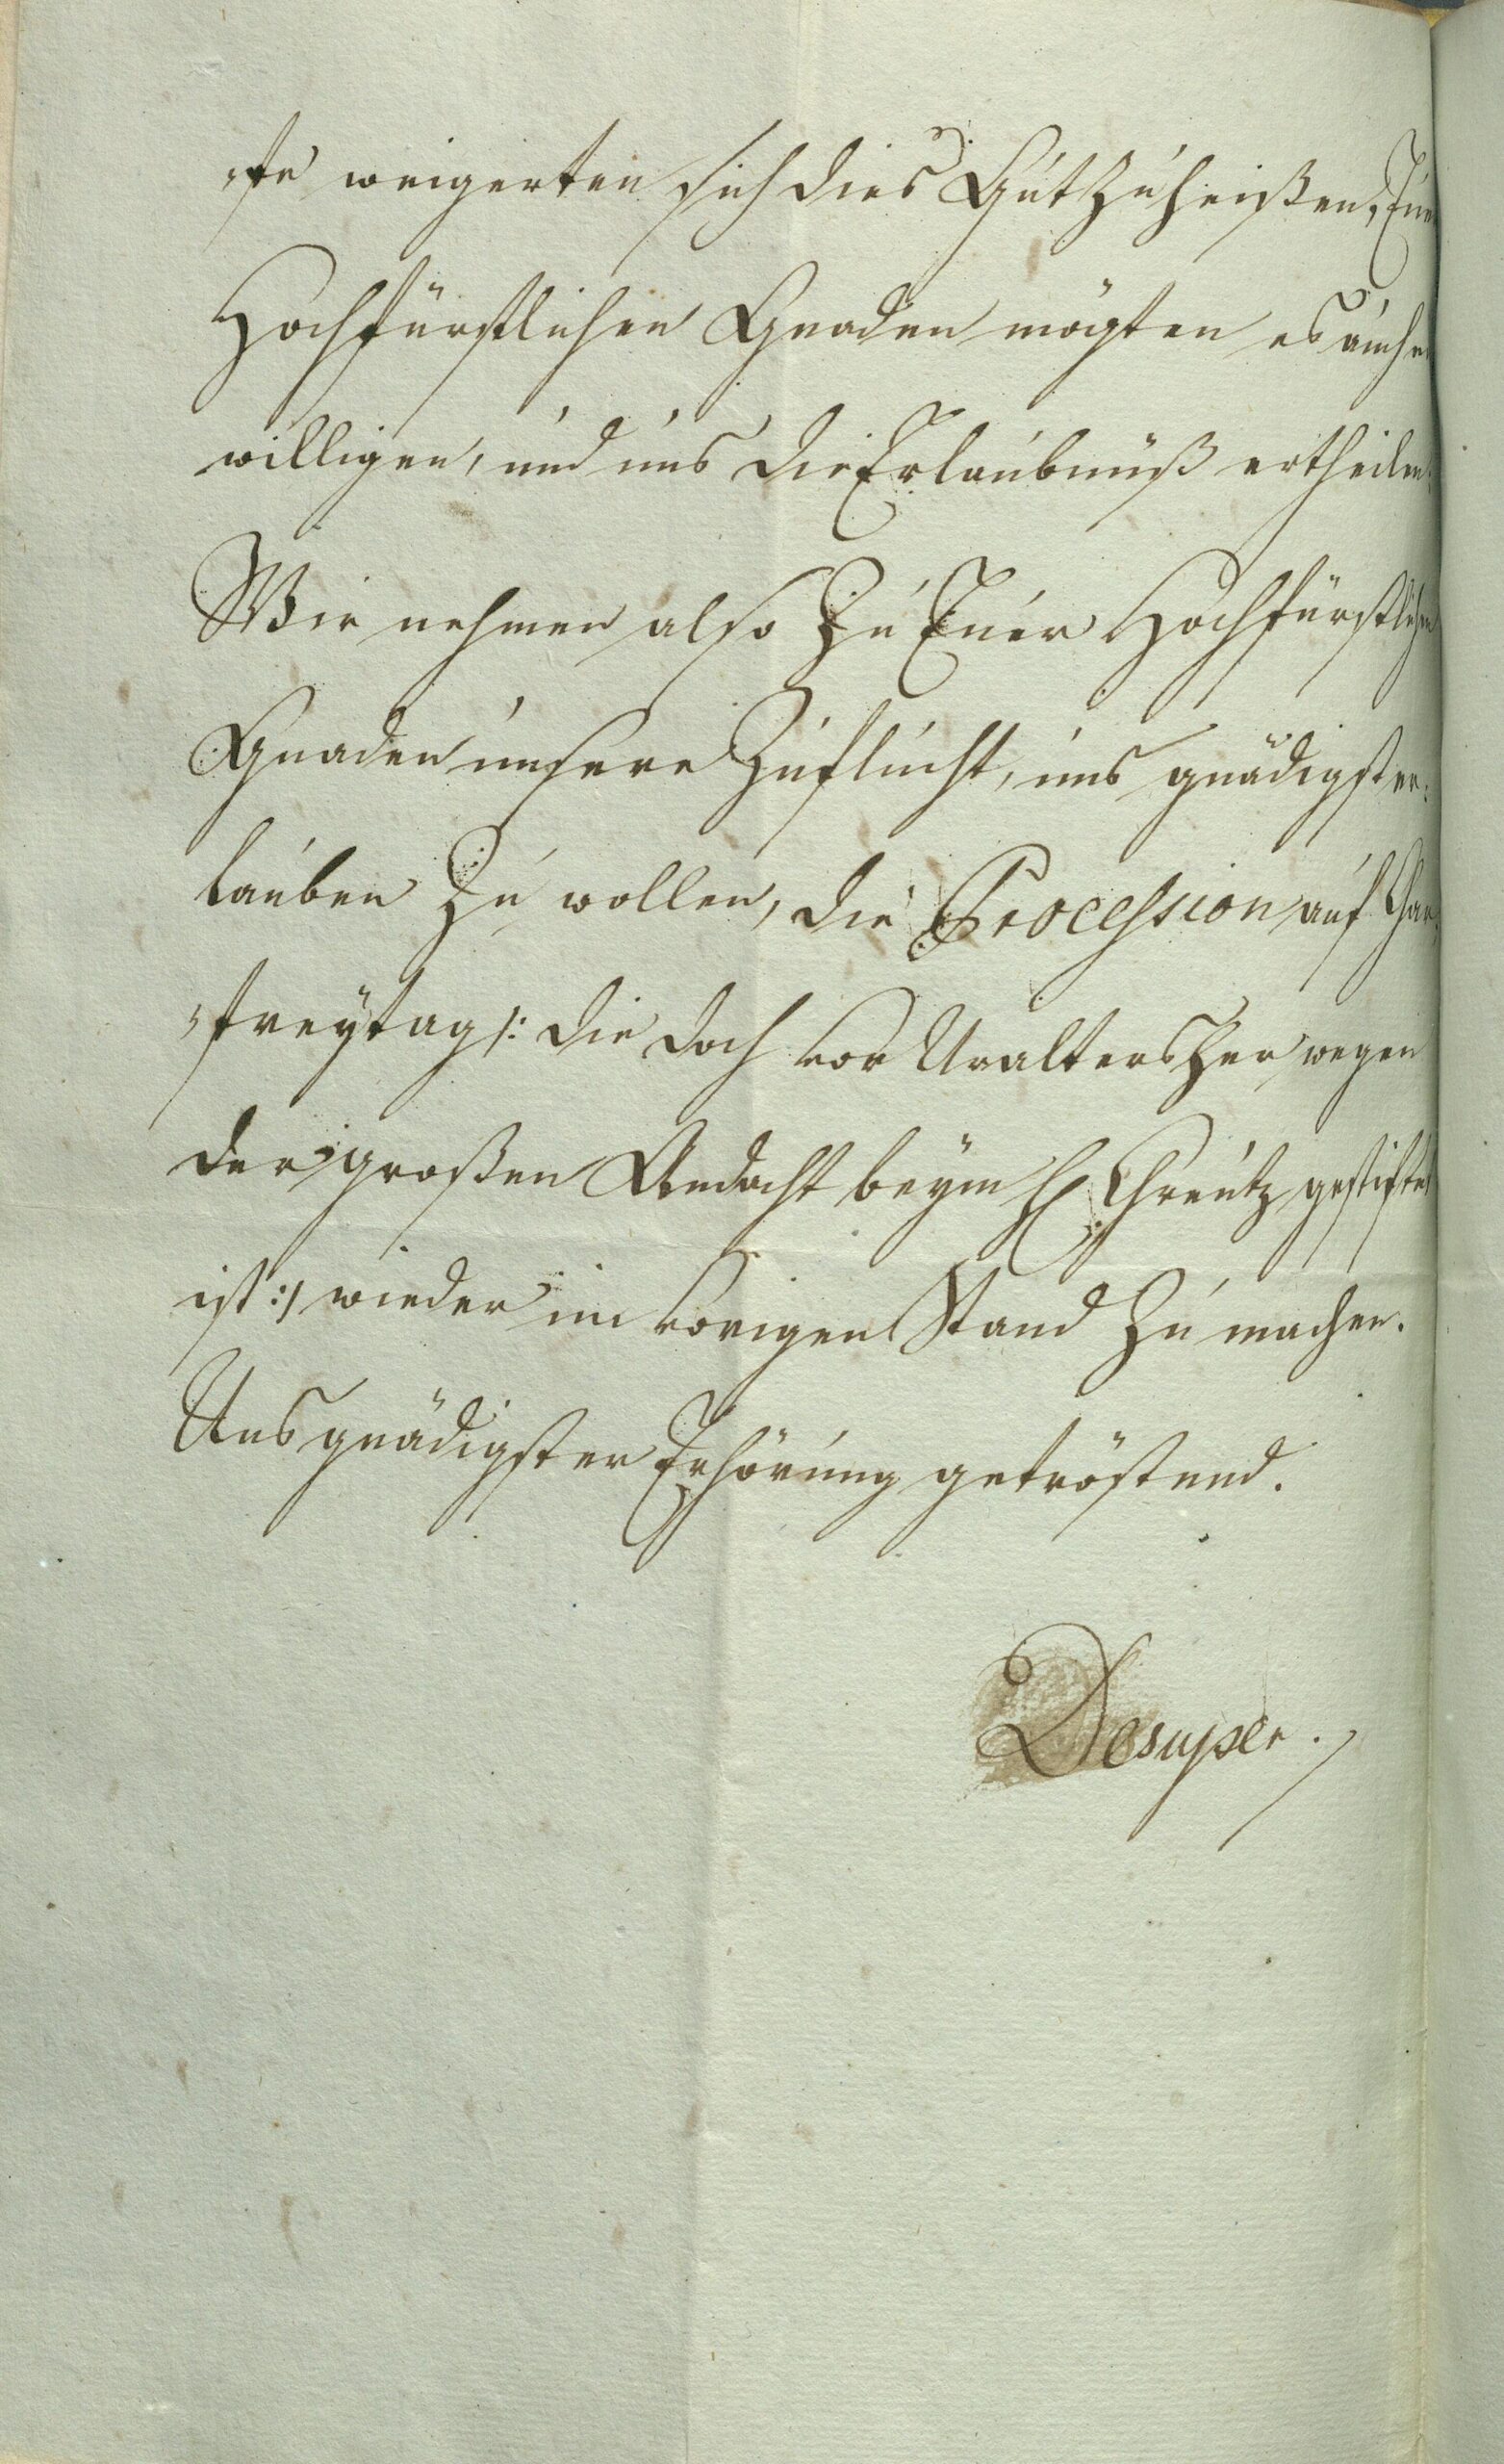 „ste weigerten sich dies Gut zu heißen, Euer
Hochfürstlichen Gnaden mögten es auch
willigen, und uns die Erlaubnüß ertheilen.
Wir nehmen also Zu Euer Hochfürstlichen
Gnaden unsere Zuflucht, uns gnädigst er:
lauben Zu wollen, die Procession auf Char
„freÿtag /: die doch vor Uralters Her wegen
der großen Andacht beÿm H. Chreutz gestiftet
ist :/ wieder im vorigen Stand Zu machen.
Uns gnädigster Erhörung getröstend.
Desuper.